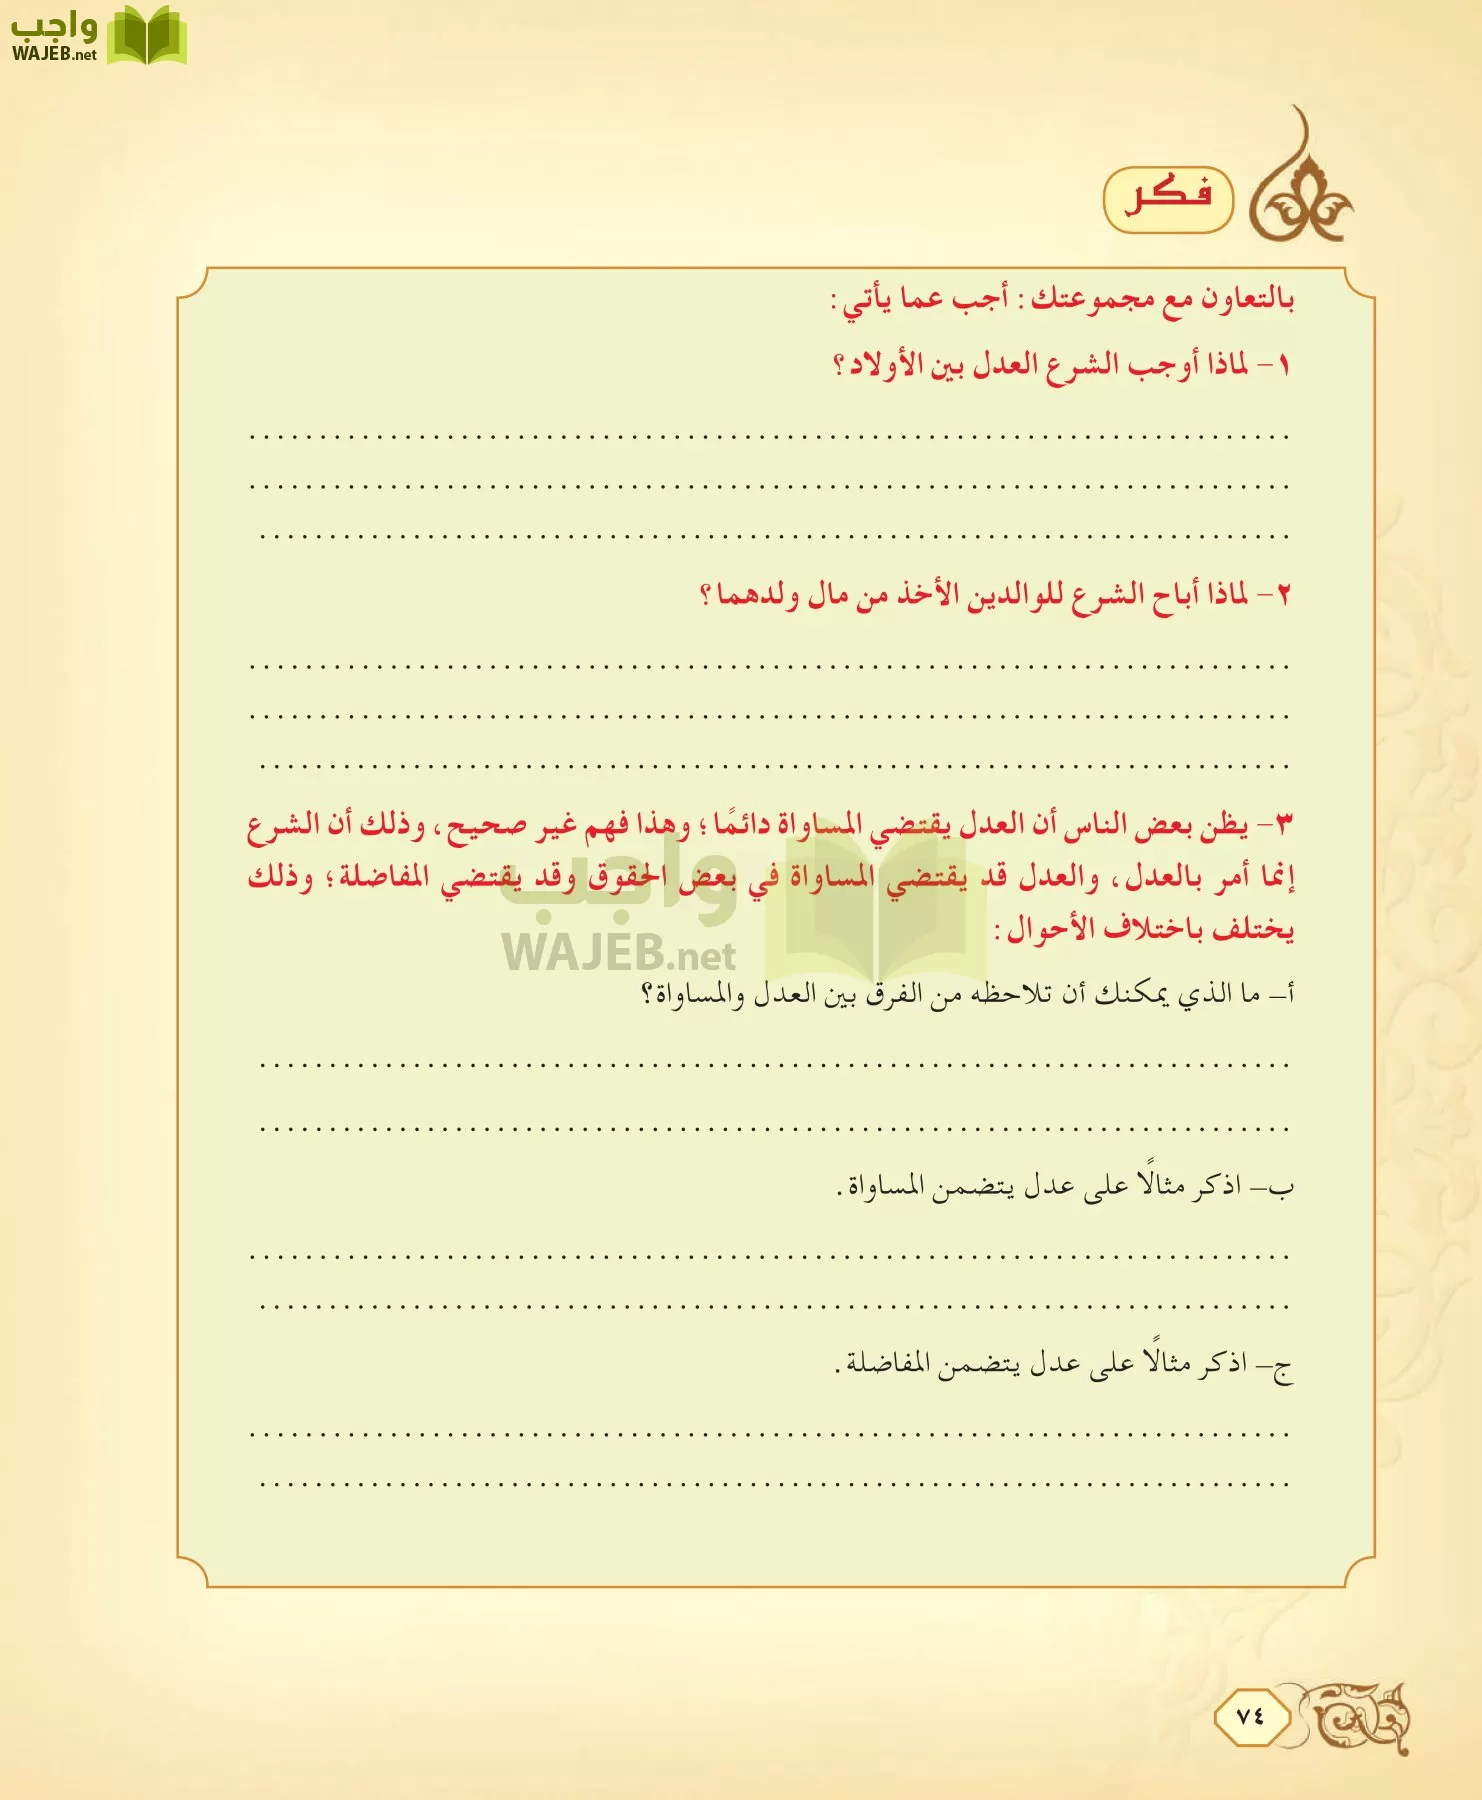 واجب
WAJEB.net
فكر
بالتعاون مع مجموعتك : أجب عما يأتي :
١- لماذا أوجب الشرع العدل بين الأولاد ؟
٢- لماذا أباح الشرع للوالدين الأخذ من مال ولدهما ؟
٣- يظن بعض الناس أن العدل يقتضي المساواة دائمًا ؛ وهذا فهم غير صحيح ، وذلك أن الشرع
إنما أمر بالعدل ، والعدل قد يقتضي المساواة في بعض الحقوق وقد يقتضي المفاضلة ؛ وذلك
يختلف باختلاف الأحوال :
واجب
WAJEB.net
أ- ما الذي يمكنك أن تلاحظه من الفرق بين العدل والمساواة؟
ب- اذكر مثالًا على عدل يتضمن المساواة .
ج- اذكر مثالًا على عدل يتضمن المفاضلة .
٧٤